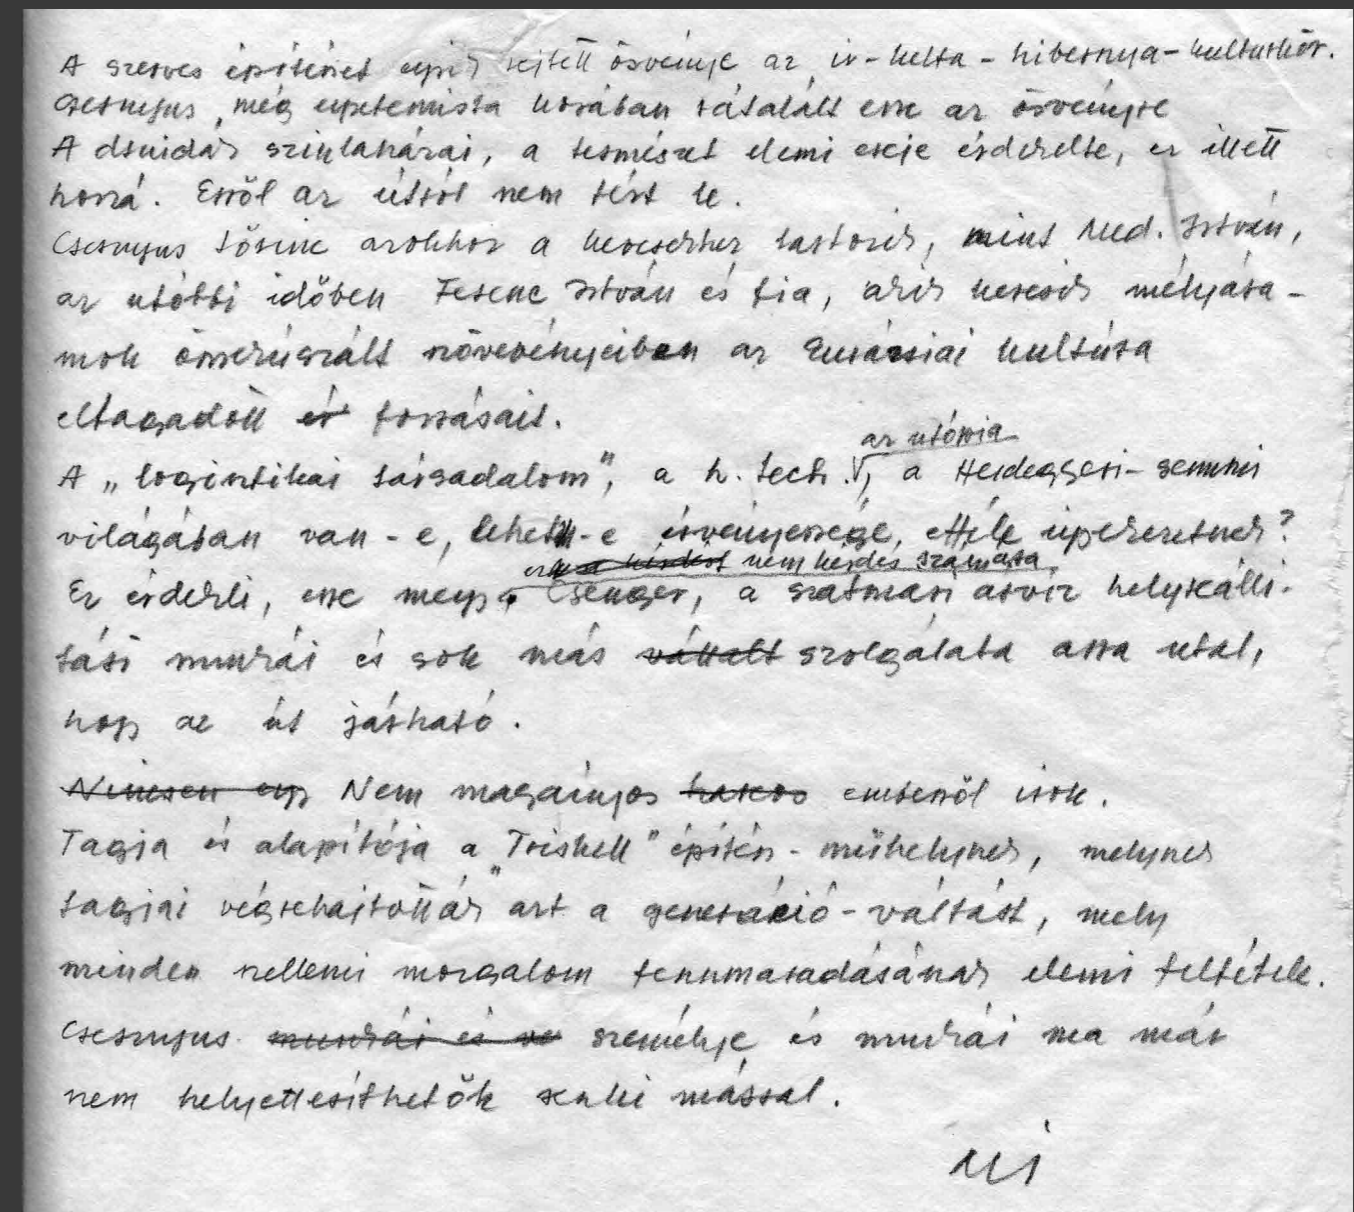 A szerves építészet egyik rejtett ösvénye az ír-kelta-hibernya-kulturkör.
Csernyus, még egyetemista korában rátalált erre az ösvényre
A druidák színlakárai, a természet elemi ereje érdekelte, ez illett
hozzá. Erről az útról nem tért le.
Csernyus Tőrinc azokhoz a kevesekhez tartozik, mint Med. István,
az utóbbi időben Ferenc István és fia, akik keresik mélyára-
mok összekúszált szövevényeiben az Eurázsiai kultúra
eltagadott és forrásait.
az utópia
A „logisztikai társadalom", a h. tech., a Heideggeri-semmi
világában van-e, lehet-e érvényessége, efféle ügyeknek?
ezek a kérdést nem kérdés számára.
Ez érdekli, erre megy, Csenger, a szatmári árvíz helyreállí-
tási munkái és sok más vállalt szolgálata arra utal,
hogy az út járható.
Nincsen egy Nem magányos harcos emberről írok.
Tagja és alapítója a „Triskell" építész-műhelynek, melynek
tagjai végrehajtották azt a generáció-váltást, mely
minden szellemi mozgalom fennmaradásának elemi feltétele.
Csernyus munkái és sze személye és munkái ma már
nem helyettesíthetők senki mással.
MI